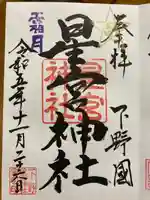 奉拝
下野國
星宮神社
星宮
神社
霜月
令和五年十一月二十六日